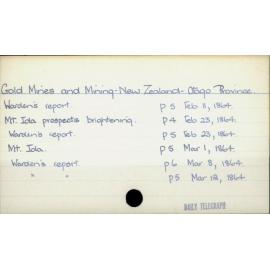 Gold Mines and Mining-New Zealand-Otago Province.
Warden's report. p 5 Feb 11, 1864.
Mt. Ida prospects brightening. p 4 Feb 23, 1864.
Warden's report. p 5 Feb 23, 1864.
Mt. Ida. p 5 Mar 1, 1864.
Warden's report. p 6 Mar 8, 1864.
" " p 5 Mar 12, 1864.
DAILY TELEGRAPH